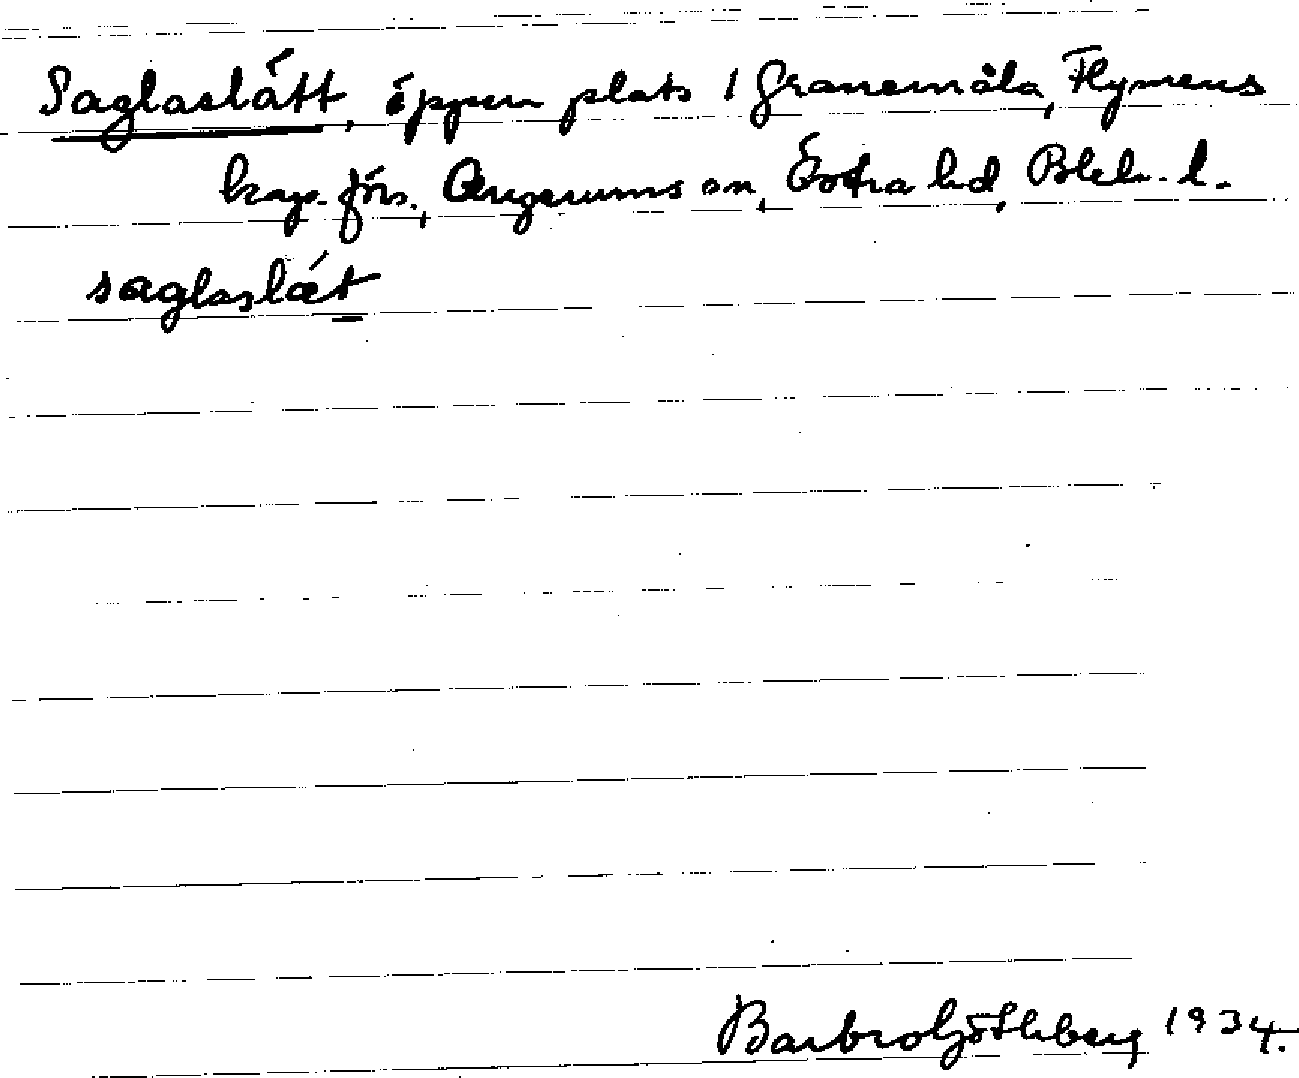 Saglaslätt, öppen plats i Granemåla, Flymens
kap. förs., Augerums sn, Östra hd, Blek. l.
saglaslæt
Barbro Göthberg 1934.